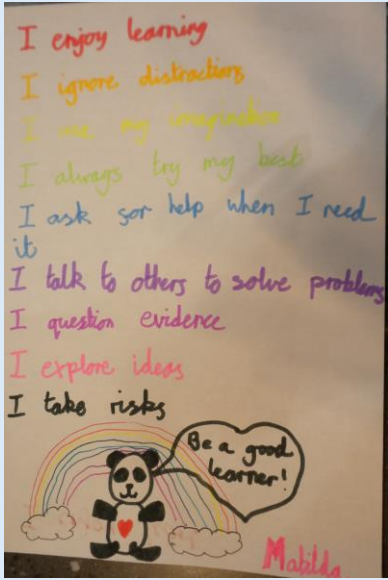 I enjoy learning
I ignore distractions
I use my imagination
I always try my best
I ask for help when I need
it
I talk to others to solve problems
I question evidence
I explore ideas
I take risks
Be a good
learner!
Matilda